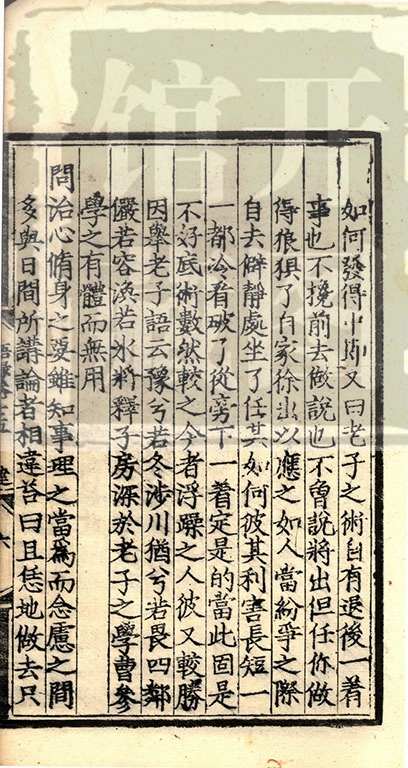 如何發得中節又曰老子之術自有退後一着
事也不攙前去做說也不曾說將出但任你做
得狼狽了自家徐出以應之如人當紛爭之際
自去僻靜處坐了任其如何彼其利害長短一
一都冷看破了從旁下一着定是的當此固是
不好底術數然較之今者浮躁之人彼又較勝
因舉老子語云豫兮若冬涉川猶兮若畏四鄰
儼若容渙若氷將釋子房深於老子之學曹參
學之有體而無用
問治心脩身之要雖知事理之當爲而念慮之間
多與日間所講論者相違荅曰且恁地做去只
六